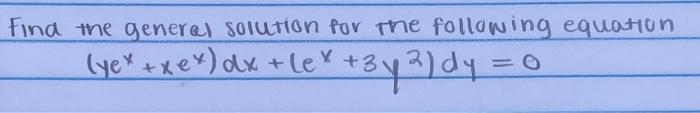 Find the general solution for the following equation
(ye^x + xe^x) dx + (e^x + 3y^2) dy = 0